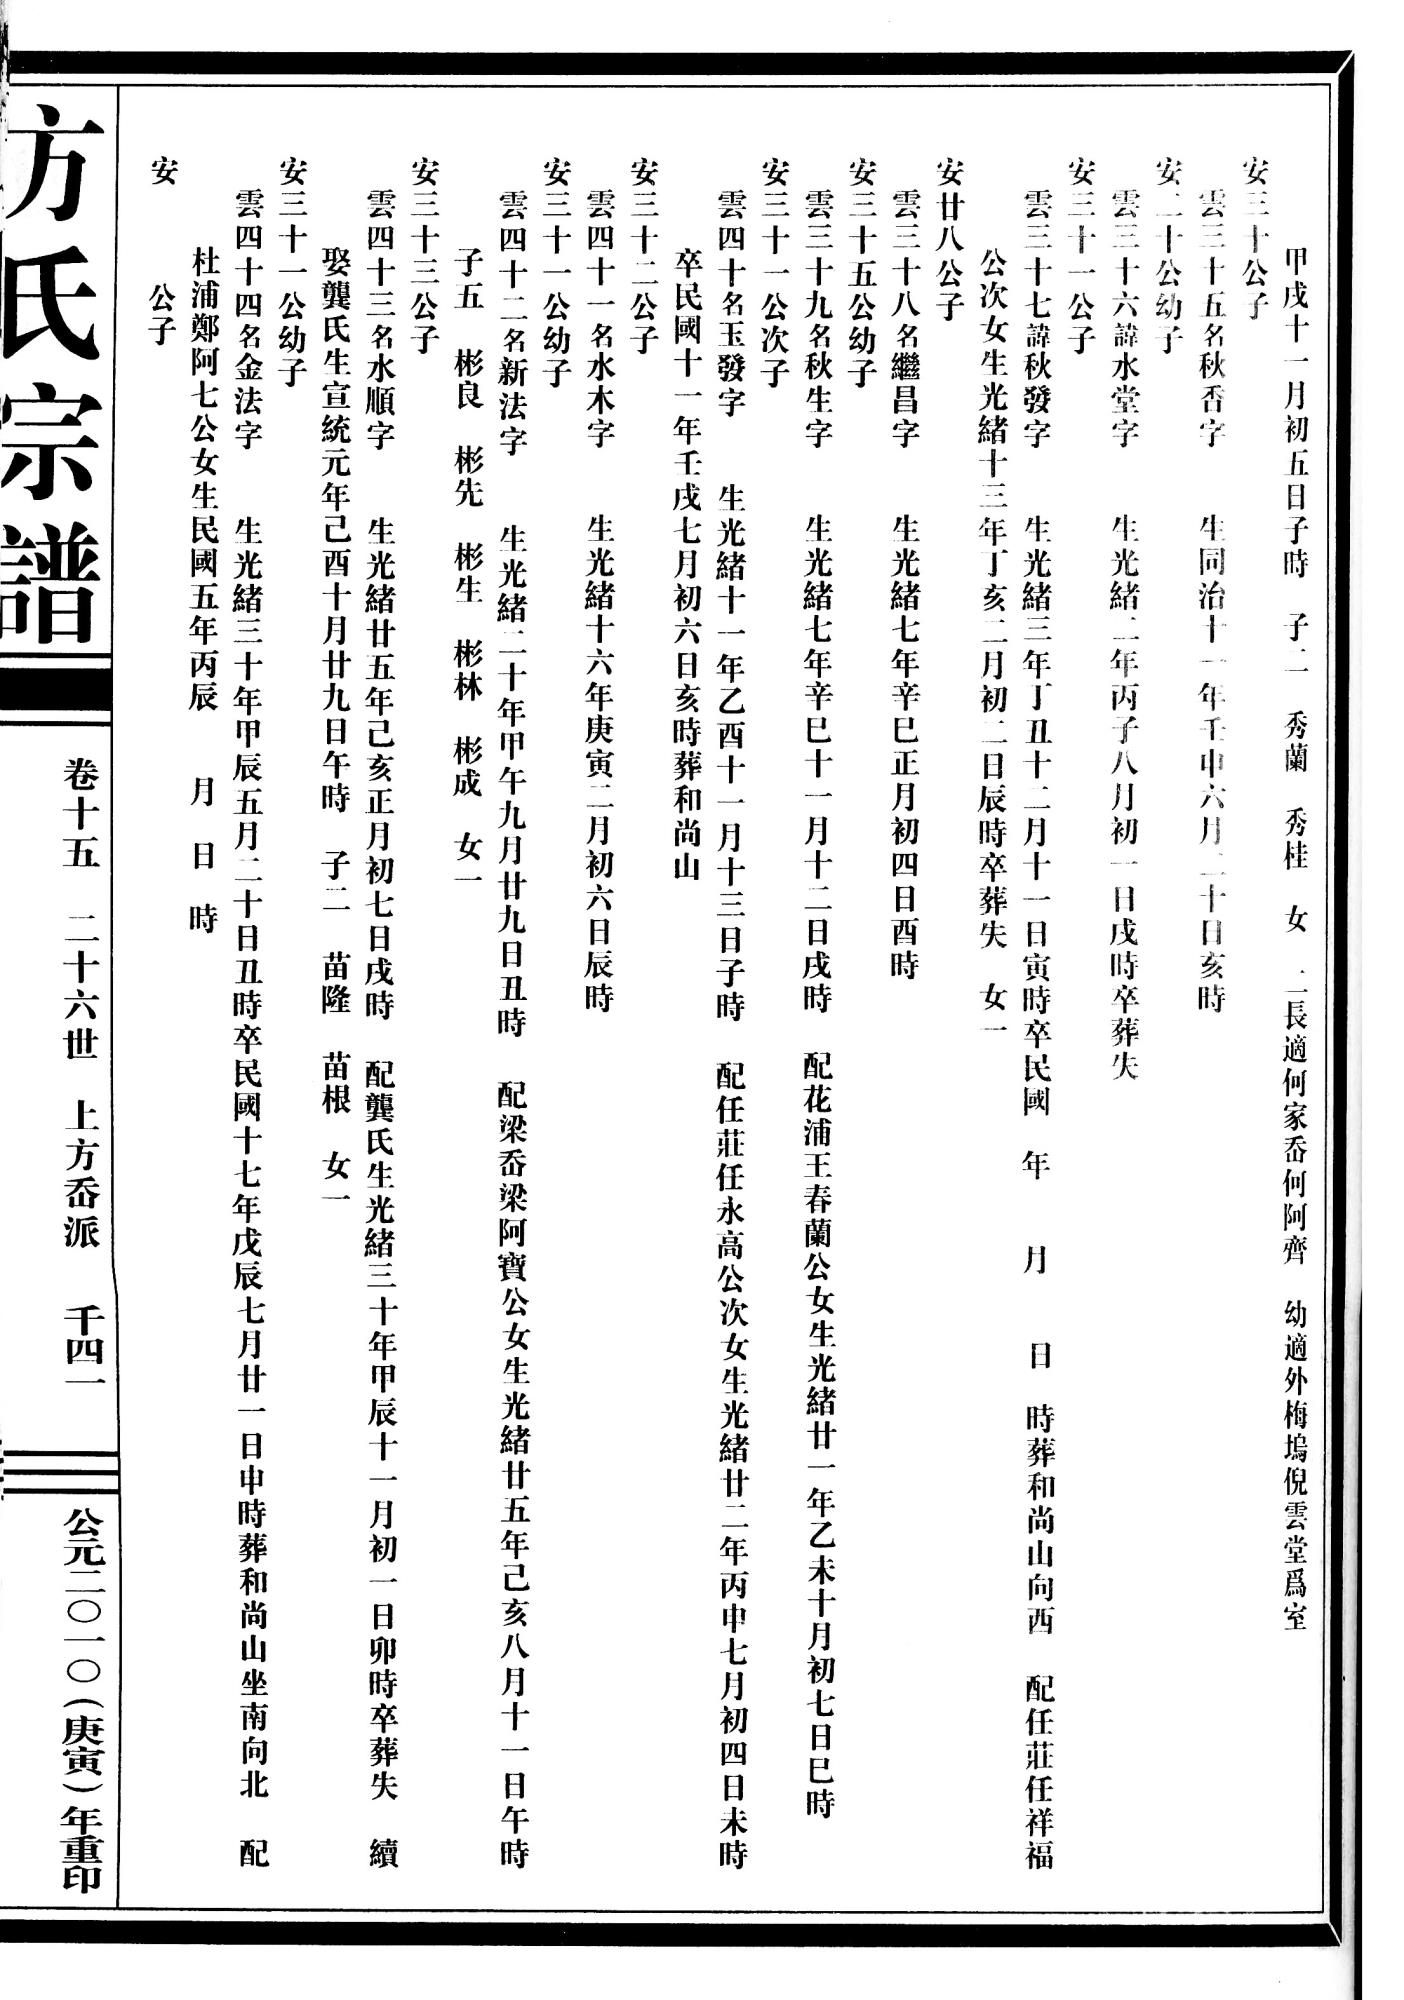 甲戌十一月初五日子時　子二　秀蘭　秀桂　女　二長適何家岙何阿齊　幼適外梅塢倪雲堂爲室
安三十公子
雲三十五名秋香字　生同治十一年壬申六月二十日亥時
安二十公幼子
雲三十六諱水堂字　生光緒二年丙子八月初一日戌時卒葬失
安三十一公子
雲三十七諱秋發字　生光緒三年丁丑十二月十一日寅時卒民國　年　月　日　時葬和尚山向西　配任莊任祥福
公次女生光緒十三年丁亥二月初二日辰時卒葬失　女一
安廿八公子
雲三十八名繼昌字　生光緒七年辛巳正月初四日酉時
安三十五公幼子
雲三十九名秋生字　生光緒七年辛巳十一月十二日戌時　配花浦王春蘭公女生光緒廿一年乙未十月初七日巳時
安三十一公次子
雲四十名玉發字　生光緒十一年乙酉十一月十三日子時　配任莊任永高公次女生光緒廿二年丙申七月初四日未時
卒民國十一年壬戌七月初六日亥時葬和尚山
安三十二公子
雲四十一名水木字　生光緒十六年庚寅二月初六日辰時
安三十一公幼子
雲四十二名新法字　生光緒二十年甲午九月廿九日丑時　配梁岙梁阿寶公女生光緒廿五年己亥八月十一日午時
子五　彬良　彬先　彬生　彬林　彬成　女一
安三十三公子
雲四十三名水順字　生光緒廿五年己亥正月初七日戌時　配龔氏生光緒三十年甲辰十一月初一日卯時卒葬失　續
娶龔氏生宣統元年己酉十月廿九日午時　子二　苗隆　苗根　女一
安三十一公幼子
雲四十四名金法字　生光緒三十年甲辰五月二十日丑時卒民國十七年戊辰七月廿一日申時葬和尚山坐南向北　配
杜浦鄭阿七公女生民國五年丙辰　月　日　時
安　　公子
方氏宗譜　卷十五　二十六世　上方岙派　千四一　公元二〇一〇（庚寅）年重印